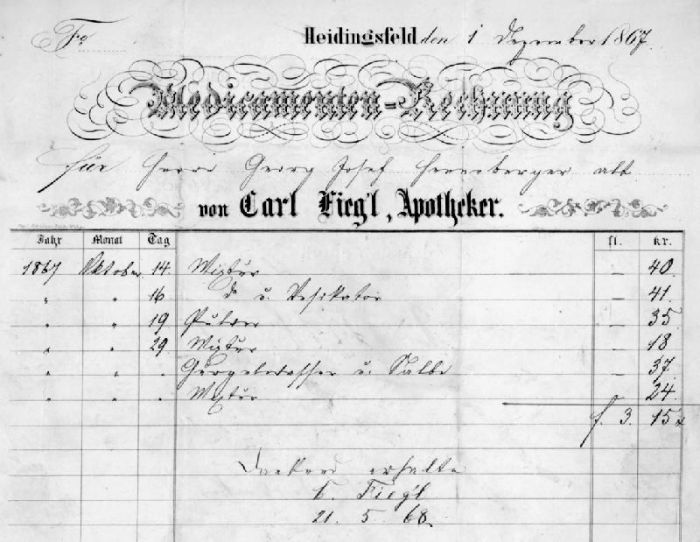 Fo Heidingsfeld den 1 Dezember 1867.
Medicamenten-Rechnung
für Herrn Georg Josef Henneberger alt
von Carl Fieg'l, Apotheker.
Jahr Monat Tag fl. kr.
1867 Oktober 14. Mixtur — 40.
" " 16 do u. Vesikator — 41.
" " 19 Pulver — 35
" " 29 Mixtur — 18
" " " Gurgelwasser u. Salbe — 37.
" " " Mixtur — 24
f. 3. 15 x
Dankend erhalten
C. Fieg'l
21. 5. 68.